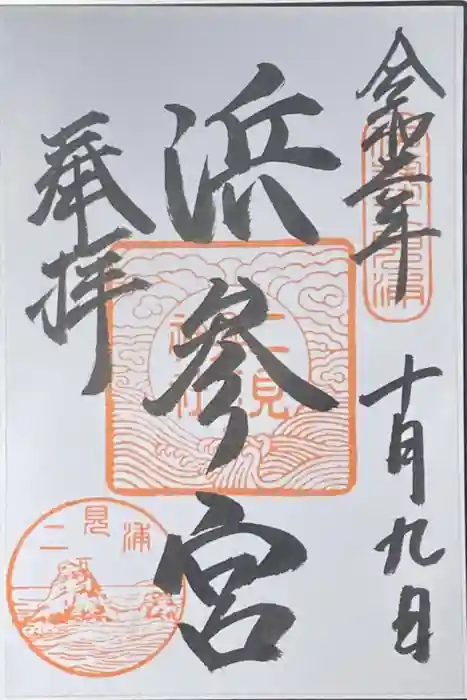 令和三年
十月九日
浜参宮
奉拝
二見
神社
二見浦